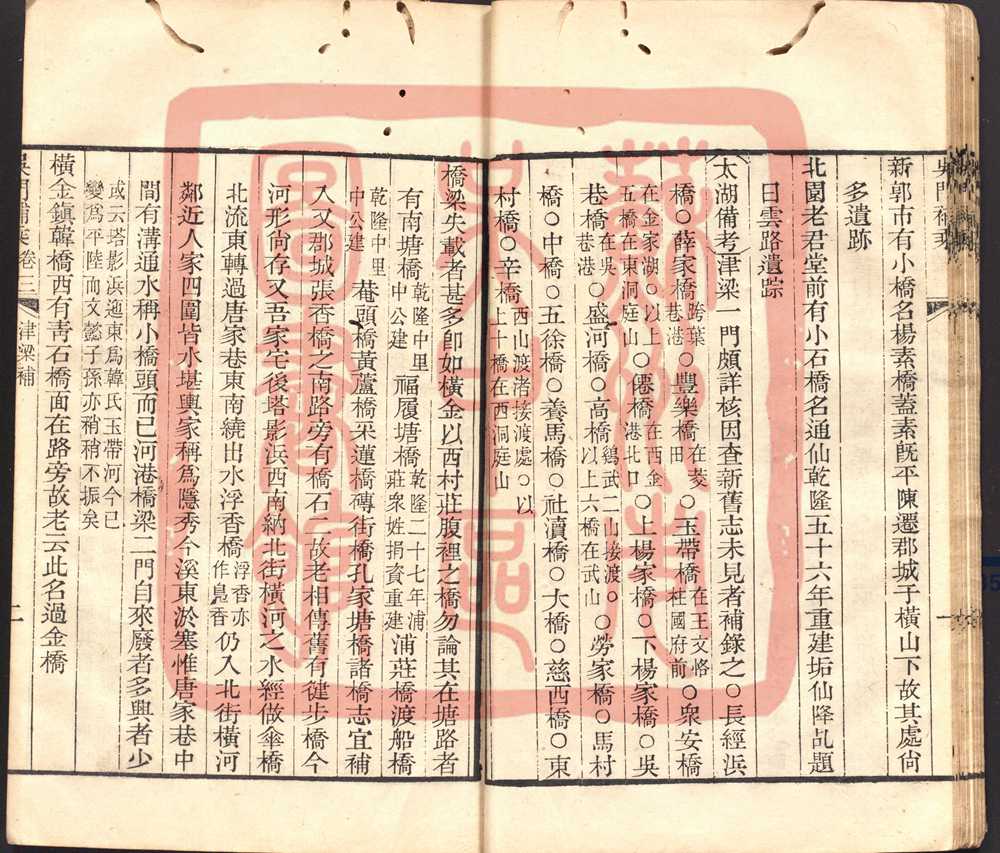 新郭市有小橋名楊素橋蓋素旣平陳遷郡城于橫山下故其處尙
多遺跡
北園老君堂前有小石橋名通仙乾隆五十六年重建垢仙降乩題
曰雲路遺踪
太湖備考津梁一門頗詳核因查新舊志未見者補錄之○長經浜
橋○薛家橋跨葉巷港○豐樂橋在菱田○玉帶橋在王文恪杜國府前○衆安橋
在金家湖○以上五橋在東洞庭山○僊橋在西金港北口○上楊家橋○下楊家橋○吳
巷橋在吳巷港○盛河橋○高橋鷄武二山接渡○以上六橋在武山○勞家橋○馬村
橋○中橋○五徐橋○養馬橋○社瀆橋○大橋○慈西橋○東
村橋○辛橋西山渡渚接渡處○以上十橋在西洞庭山
橋梁失載者甚多卽如橫金以西村莊腹裡之橋勿論其在塘路者
有南塘橋乾隆中里中公建福履塘橋乾隆二十七年浦莊衆姓捐資重建浦莊橋渡船橋
乾隆中里中公建菴頭橋黃蘆橋采蓮橋磚街橋孔家塘橋諸橋志宜補
入又郡城張香橋之南路旁有橋石二故老相傳舊有健步橋今
河形尙存又吾家宅後塔影浜西南納北街橫河之水經做傘橋
北流東轉過唐家巷東南繞出水浮香橋浮香亦作鳧香仍入北街橫河
鄰近人家四圍皆水堪輿家稱爲隱秀今溪東淤塞惟唐家巷中
間有溝通水稱小橋頭而已河港橋梁二門自來廢者多興者少
或云塔影浜迤東爲韓氏玉帶河今已變爲平陸而文懿子孫亦稍稍不振矣
橫金鎭韓橋西有靑石橋面在路旁故老云此名過金橋
卷三
津梁補
二